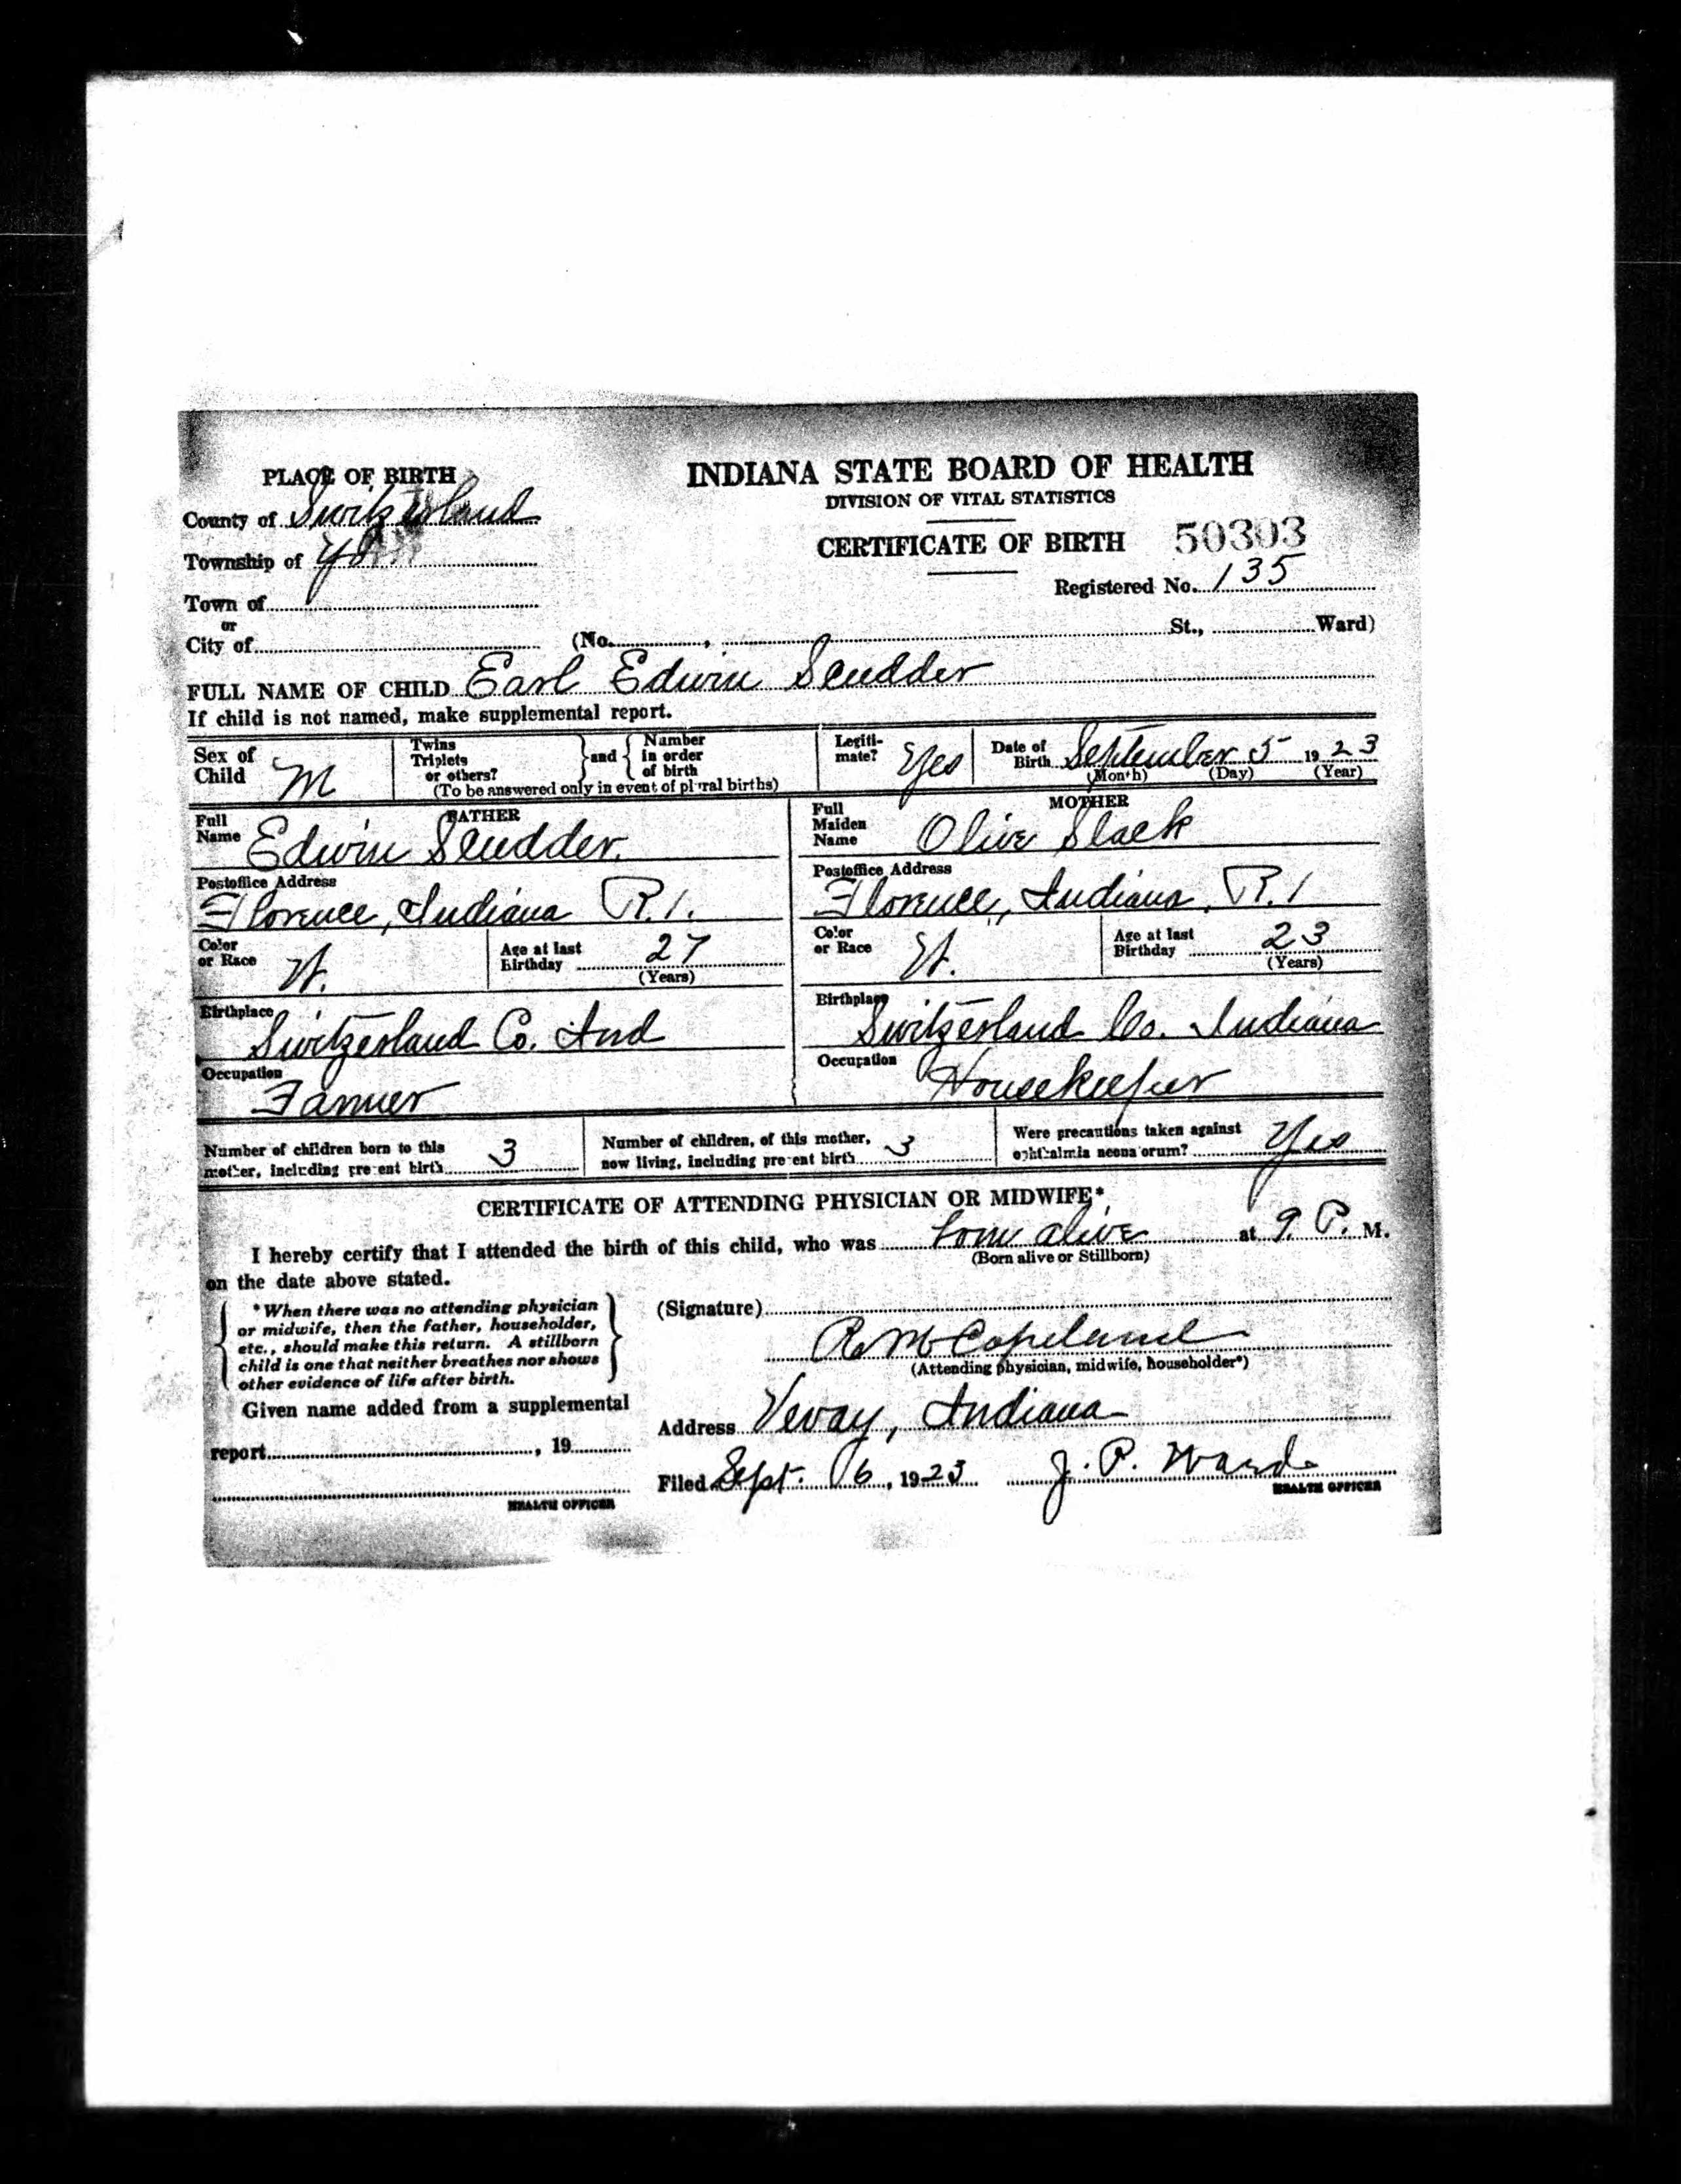 PLACE OF BIRTH
INDIANA STATE BOARD OF HEALTH
DIVISION OF VITAL STATISTICS
County of Switzerland
CERTIFICATE OF BIRTH 50303
Township of York
Registered No. 135
Town of
or
City of (No. , St., Ward)
FULL NAME OF CHILD Earl Edwin Scudder
If child is not named, make supplemental report.
Sex of Child M
Twins Triplets or others? and Number in order of birth
(To be answered only in event of plural births)
Legiti-mate? Yes
Date of Birth September 5 1923
(Month) (Day) (Year)
FATHER
Full Name Edwin Scudder.
MOTHER
Full Maiden Name Olive Slack
Postoffice Address
Florence, Indiana R.1.
Postoffice Address
Florence, Indiana, R.1
Color or Race W.
Age at last Birthday 27
(Years)
Color or Race W.
Age at last Birthday 23
(Years)
Birthplace
Switzerland Co. Ind
Birthplace
Switzerland Co. Indiana
Occupation
Farmer
Occupation
Housekeeper
Number of children born to this mother, including present birth 3
Number of children, of this mother, now living, including present birth 3
Were precautions taken against ophthalmia neonatorum? Yes
CERTIFICATE OF ATTENDING PHYSICIAN OR MIDWIFE*
I hereby certify that I attended the birth of this child, who was born alive at 9 P. M.
(Born alive or Stillborn)
on the date above stated.
*When there was no attending physician
or midwife, then the father, householder,
etc., should make this return. A stillborn
child is one that neither breathes nor shows
other evidence of life after birth.
(Signature)
R M Copeland
(Attending physician, midwife, householder*)
Given name added from a supplemental
report , 19
HEALTH OFFICER
Address Vevay, Indiana
Filed Sept. 6, 1923 J. P. Ward
HEALTH OFFICER